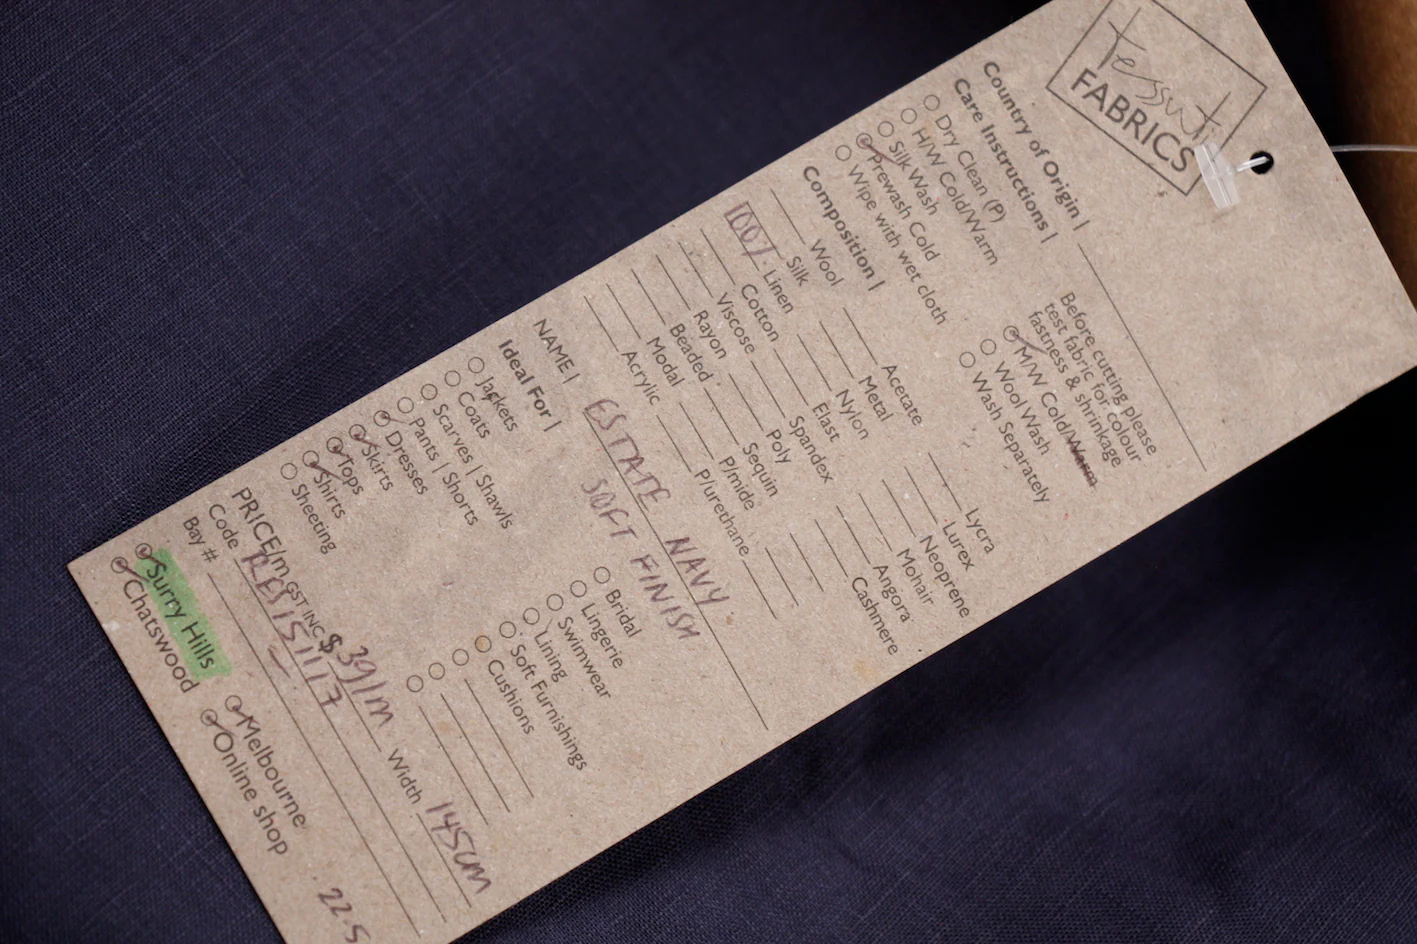 tessuti
FABRICS
Country of Origin |
Care Instructions |
Dry Clean (P)
H/W Cold/Warm
Silk Wash
Prewash Cold
Wipe with wet cloth
Before cutting please
test fabric for colour
fastness & shrinkage
M/W Cold/Warm
Wool Wash
Wash Separately
Composition |
Wool
Silk
100% Linen
Cotton
Viscose
Rayon
Beaded
Modal
Acrylic
Acetate
Metal
Nylon
Elast
Spandex
Poly
Sequin
P/mide
P/urethane
Lycra
Lurex
Neoprene
Mohair
Angora
Cashmere
NAME | ESTATE NAVY
SOFT FINISH
Ideal For |
Jackets
Coats
Scarves | Shawls
Pants | Shorts
Dresses
Skirts
Tops
Shirts
Sheeting
Bridal
Lingerie
Swimwear
Lining
Soft Furnishings
Cushions
PRICE/m GST INC $ 39/m Width 145cm
Code
Bay #
Surry Hills
Chatswood
Melbourne
Online shop
22.5